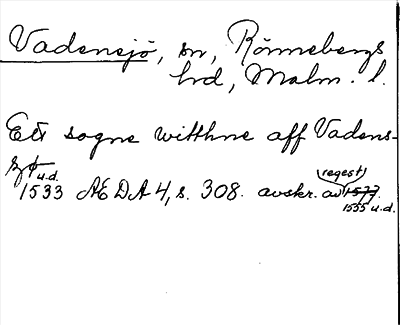 Vadensjö, sn, Rönnebergs
hrd, Malm. l.
Ett sogne witthne aff Vadens-
sø
u.d.
1533 ÆDA 4, s. 308. avskr. av 1577.
(regest)
1555 u.d.